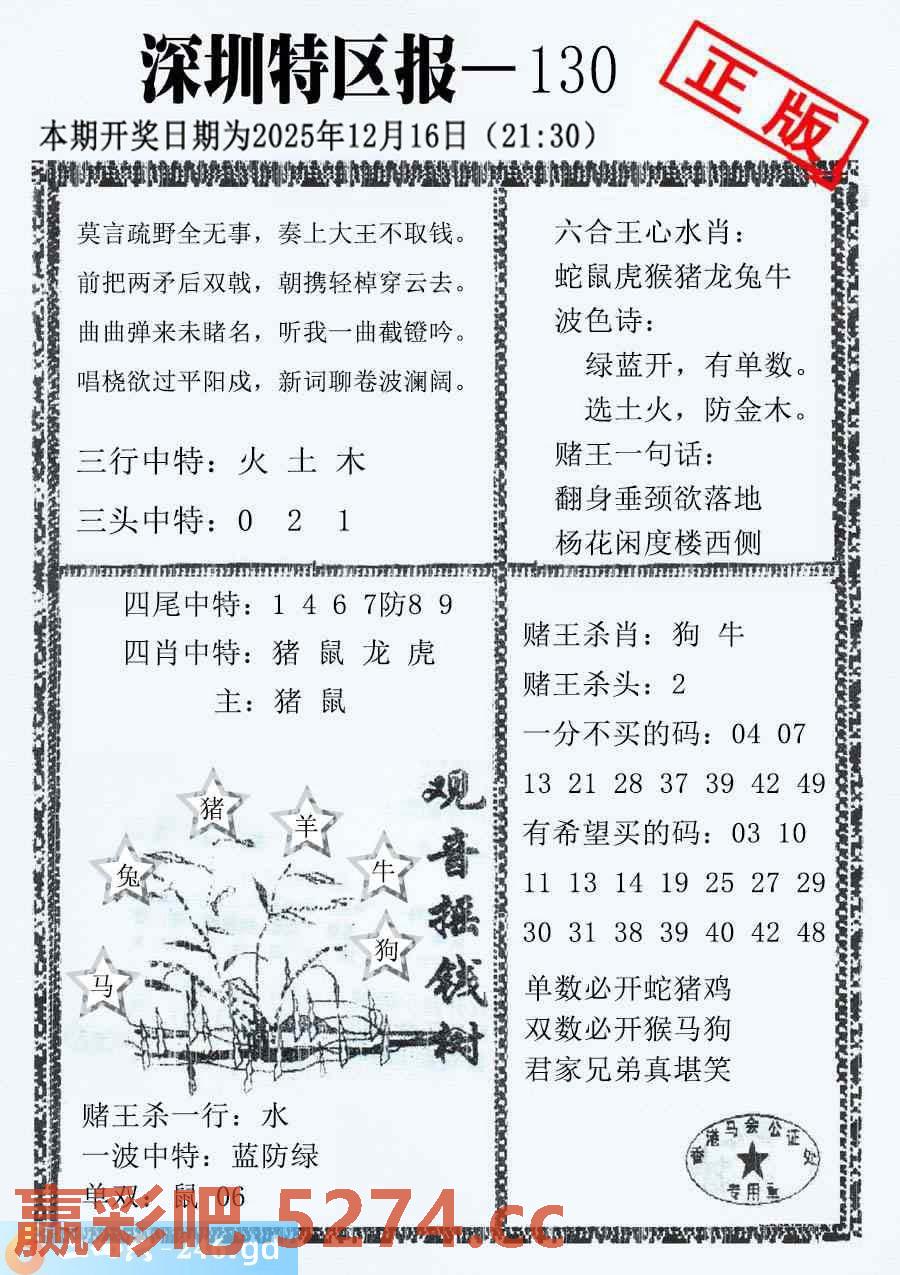 深圳特区报—130
正版
本期开奖日期为2025年12月16日（21:30）
莫言疏野全无事，奏上大王不取钱。
前把两矛后双戟，朝携轻棹穿云去。
曲曲弹来未睹名，听我一曲截镫吟。
唱桡欲过平阳戍，新词聊卷波澜阔。
三行中特：火 土 木
三头中特：0 2 1
六合王心水肖：
蛇鼠虎猴猪龙兔牛
波色诗：
绿蓝开，有单数。
选土火，防金木。
赌王一句话：
翻身垂颈欲落地
杨花闲度楼西侧
四尾中特：1 4 6 7防8 9
四肖中特：猪 鼠 龙 虎
主：猪 鼠
观音摇钱树
猪
羊
兔
牛
狗
马
赌王杀一行：水
一波中特：蓝防绿
单双：鼠 06
赌王杀肖：狗 牛
赌王杀头：2
一分不买的码：04 07
13 21 28 37 39 42 49
有希望买的码：03 10
11 13 14 19 25 27 29
30 31 38 39 40 42 48
单数必开蛇猪鸡
双数必开猴马狗
君家兄弟真堪笑
香港马会公证处
专用章
赢彩吧 5274.cc